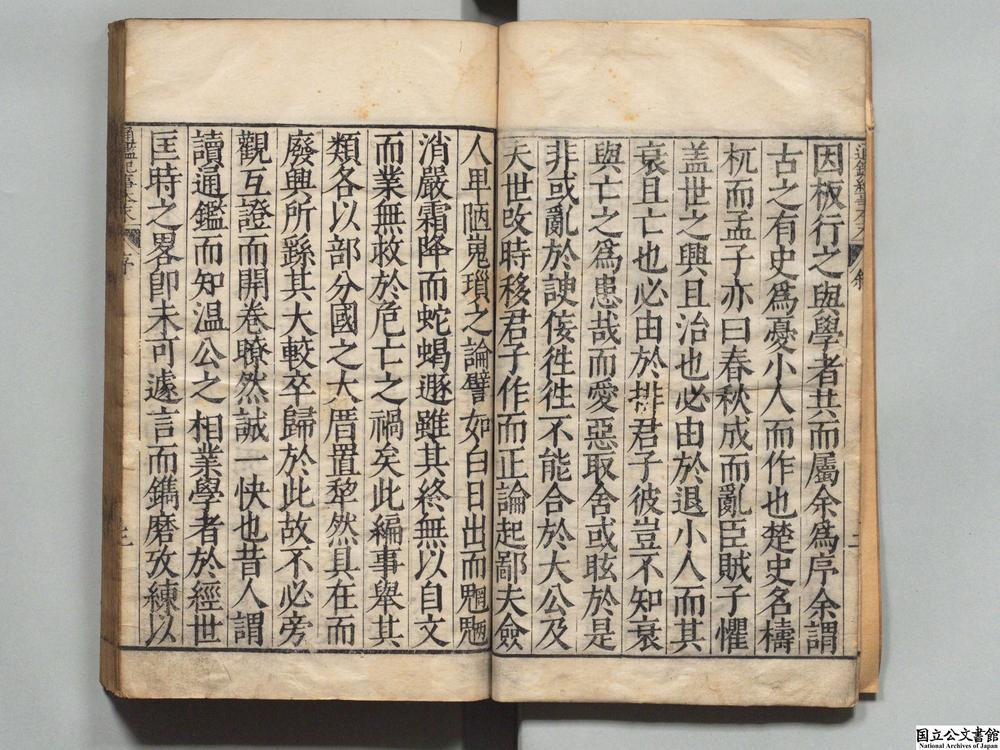 因板行之與學者共而屬余爲序余謂
古之有史爲憂小人而作也楚史名檮
杌而孟子亦曰春秋成而亂臣賊子懼
盖世之興且治也必由於退小人而其
衰且亡也必由於排君子彼豈不知衰
與亡之爲患哉而愛惡取舍或眩於是
非或亂於諛佞徃徃不能合於大公及
夫世改時移君子作而正論起鄙夫僉
人卑陋嵬瑣之論譬如白日出而魍魎
消嚴霜降而蛇蝎遯雖其終無以自文
而業無救於危亡之禍矣此編事舉其
類各以部分國之大厝置犂然具在而
廢興所繇其大較卒歸於此故不必旁
觀互證而開卷瞭然誠一快也昔人謂
讀通鑑而知温公之相業學者於經世
匡時之畧卽未可遽言而鐫磨攷練以
通鑑紀事本末
序
三
通鑑紀事本末
敘
二
国立公文書館
National Archives of Japan